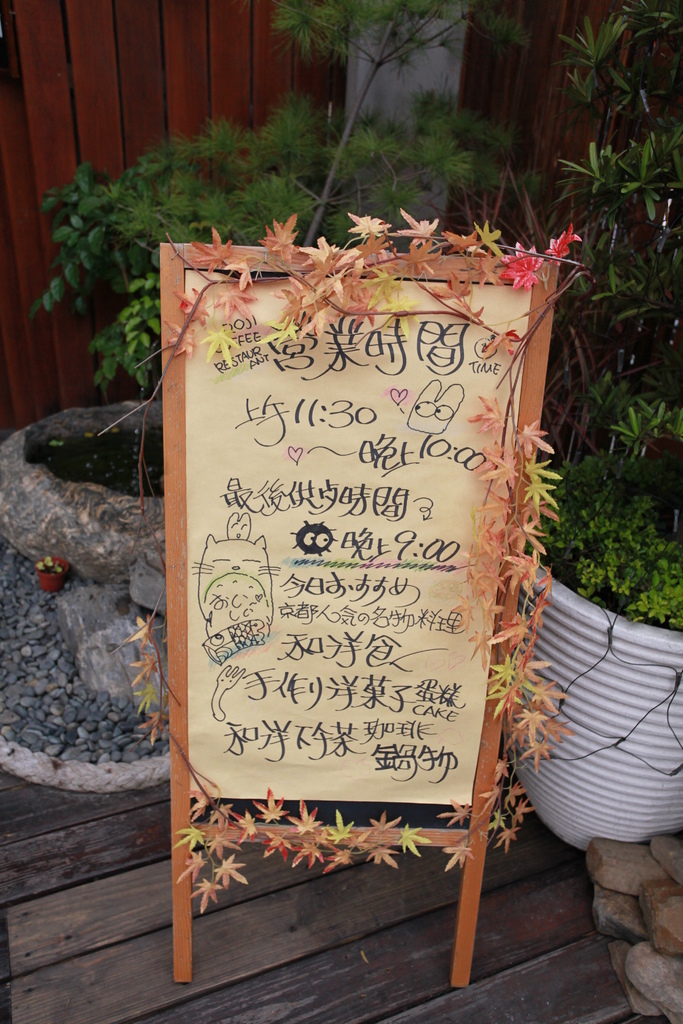 COFFEE
RESTAURANT
營業時間
TIME
上午11:30
～晚上10:00
最後供歺時間
晚上9:00
今日おすすめ
京都人気の名物料理
和洋食～
手作り洋菓子 蛋糕
CAKE
和洋下午茶 珈琲
鍋物